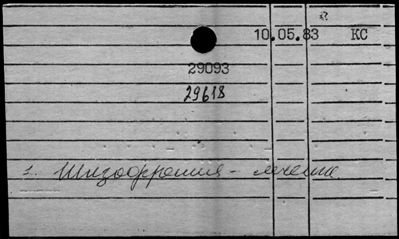 10.05.83 КС
29093
29618
1. Шизофрения - лечение